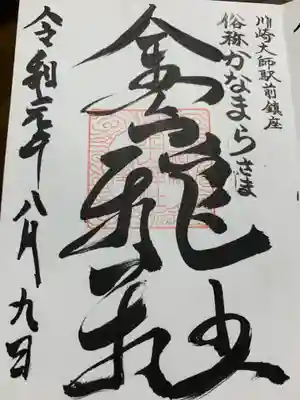 川崎大師駅前鎮座
俗称かなまらさま
金山神社
令和元年八月九日